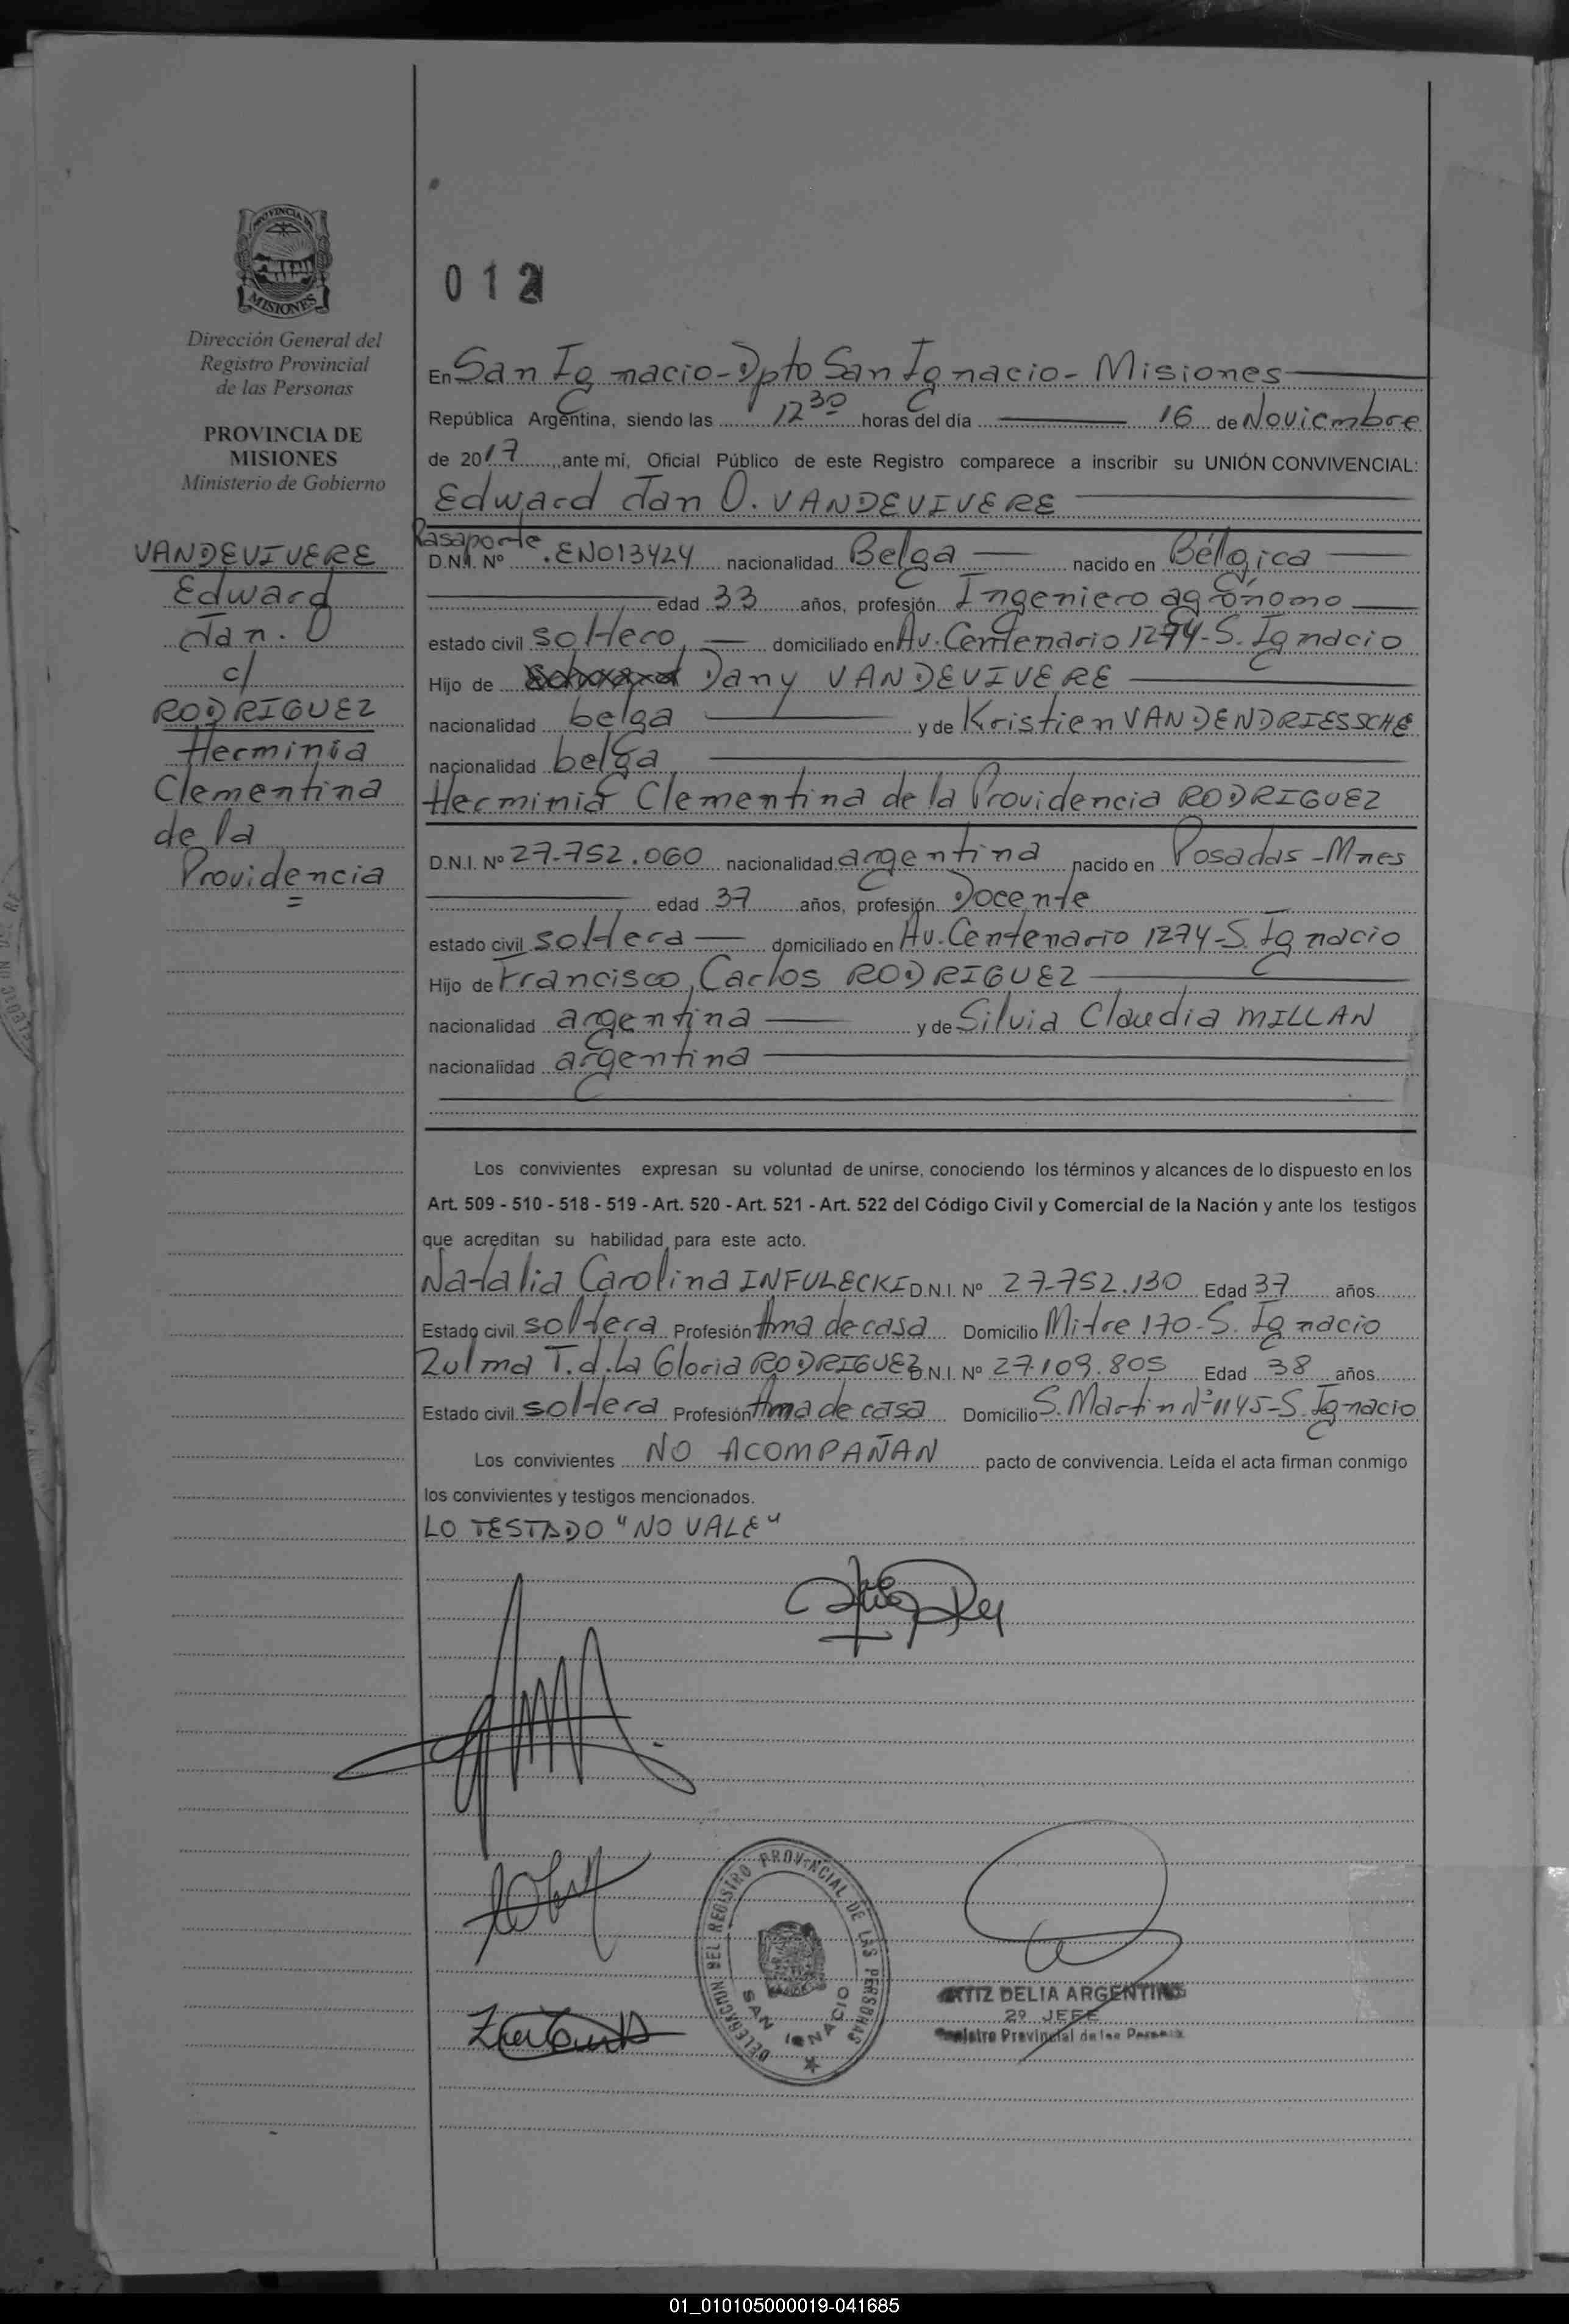 PROVINCIA DE
MISIONES
Dirección General del
Registro Provincial
de las Personas
PROVINCIA DE
MISIONES
Ministerio de Gobierno
VANDEVIVERE
Edward
Jan. O
c/
RODRIGUEZ
Herminia
Clementina
de la
Providencia
012
En San Ignacio - Dpto San Ignacio - Misiones
República Argentina, siendo las 12 30 horas del día 16 de Noviembre
de 2017, ante mí, Oficial Público de este Registro comparece a inscribir su UNIÓN CONVIVENCIAL:
Edward Jan O. VANDEVIVERE
Pasaporte
D.N.I. Nº EN013424 nacionalidad Belga nacido en Bélgica
edad 33 años, profesión Ingeniero agrónomo
estado civil soltero domiciliado en Av. Centenario 1274 - S. Ignacio
Hijo de Dany VANDEVIVERE
nacionalidad belga y de Kristien VANDENDRIESSCHE
nacionalidad belga
Herminia Clementina de la Providencia RODRIGUEZ
D.N.I. Nº 27.752.060 nacionalidad argentina nacido en Posadas - Mnes
edad 37 años, profesión Docente
estado civil soltera domiciliado en Av. Centenario 1274 - S. Ignacio
Hijo de Francisco Carlos RODRIGUEZ
nacionalidad argentina y de Silvia Claudia MILLAN
nacionalidad argentina
Los convivientes expresan su voluntad de unirse, conociendo los términos y alcances de lo dispuesto en los
Art. 509 - 510 - 518 - 519 - Art. 520 - Art. 521 - Art. 522 del Código Civil y Comercial de la Nación y ante los testigos
que acreditan su habilidad para este acto.
Natalia Carolina INFULECKI D.N.I. Nº 27.752.130 Edad 37 años
Estado civil soltera Profesión Ama de casa Domicilio Mitre 170 - S. Ignacio
Zulma T. d. la Gloria RODRIGUEZ D.N.I. Nº 27.109.805 Edad 38 años
Estado civil soltera Profesión Ama de casa Domicilio S. Martin Nº 1145 - S. Ignacio
Los convivientes NO ACOMPAÑAN pacto de convivencia. Leída el acta firman conmigo
los convivientes y testigos mencionados.
LO TESTADO "NO VALE"
DELEGACION DEL REGISTRO PROVINCIAL DE LAS PERSONAS
SAN IGNACIO
ORTIZ DELIA ARGENTINA
2º JEFE
Registro Provincial de las Personas
01_010105000019-041685